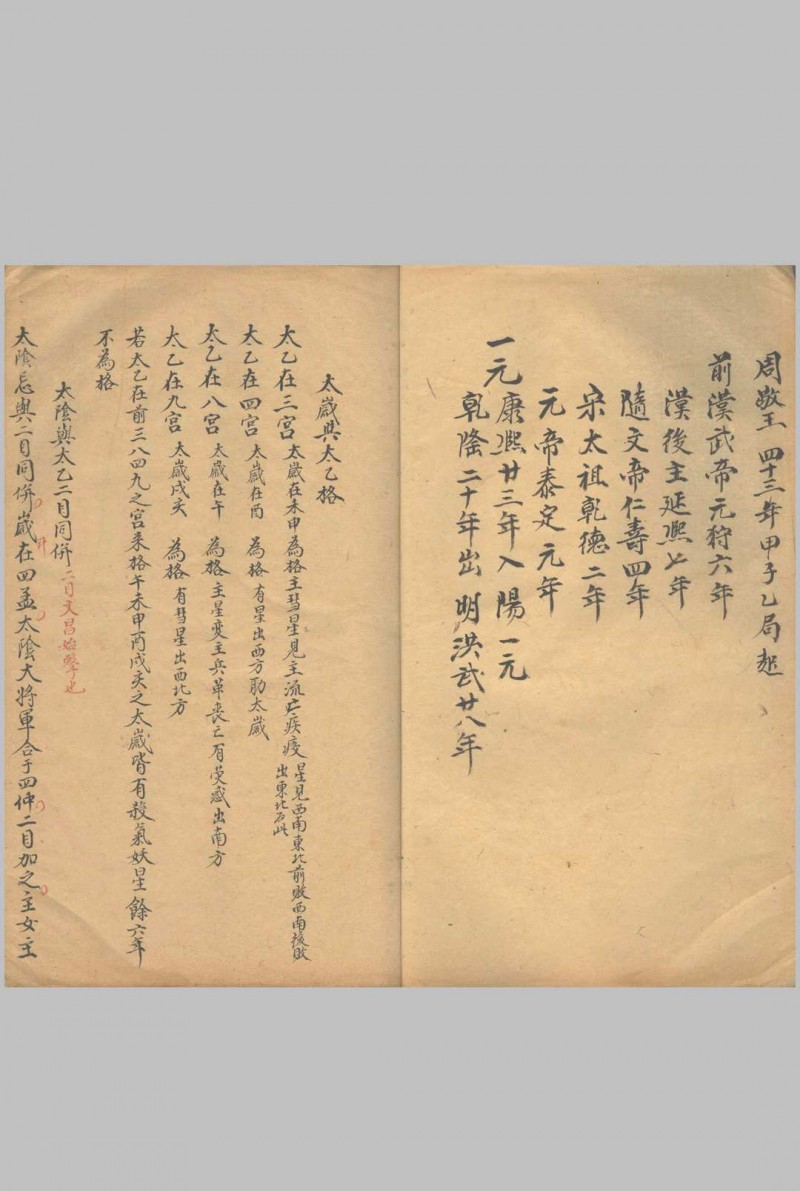 周敬王四十三年甲子乙局起
前漢武帝元狩六年
漢後主延熙七年
隨文帝仁壽四年
宋太祖乾德二年
元帝泰定元年
一元康熙廿三年入陽一元
乾隆二十年出明洪武廿八年
太歲與太乙格
太乙在三宮太歲在未申為格主彗星見主流亡疾疫星見西南東北前敗西南後敗出東北
太乙在四宮太歲在酉為格有星出西方助太歲
太乙在八宮太歲在午為格主星变主兵革喪亡有熒惑出南方
太乙在九宮太歲戌亥為格有彗星出西北方
若太乙在前三八四九之宮来格午未申酉戌亥之太歲皆有殺氣妖星餘六年
不為格
太陰與太乙二目同併二目文昌始擊也
太陰忌與二目同併歲在四孟太陰大將軍合于四仲二目加之主女主